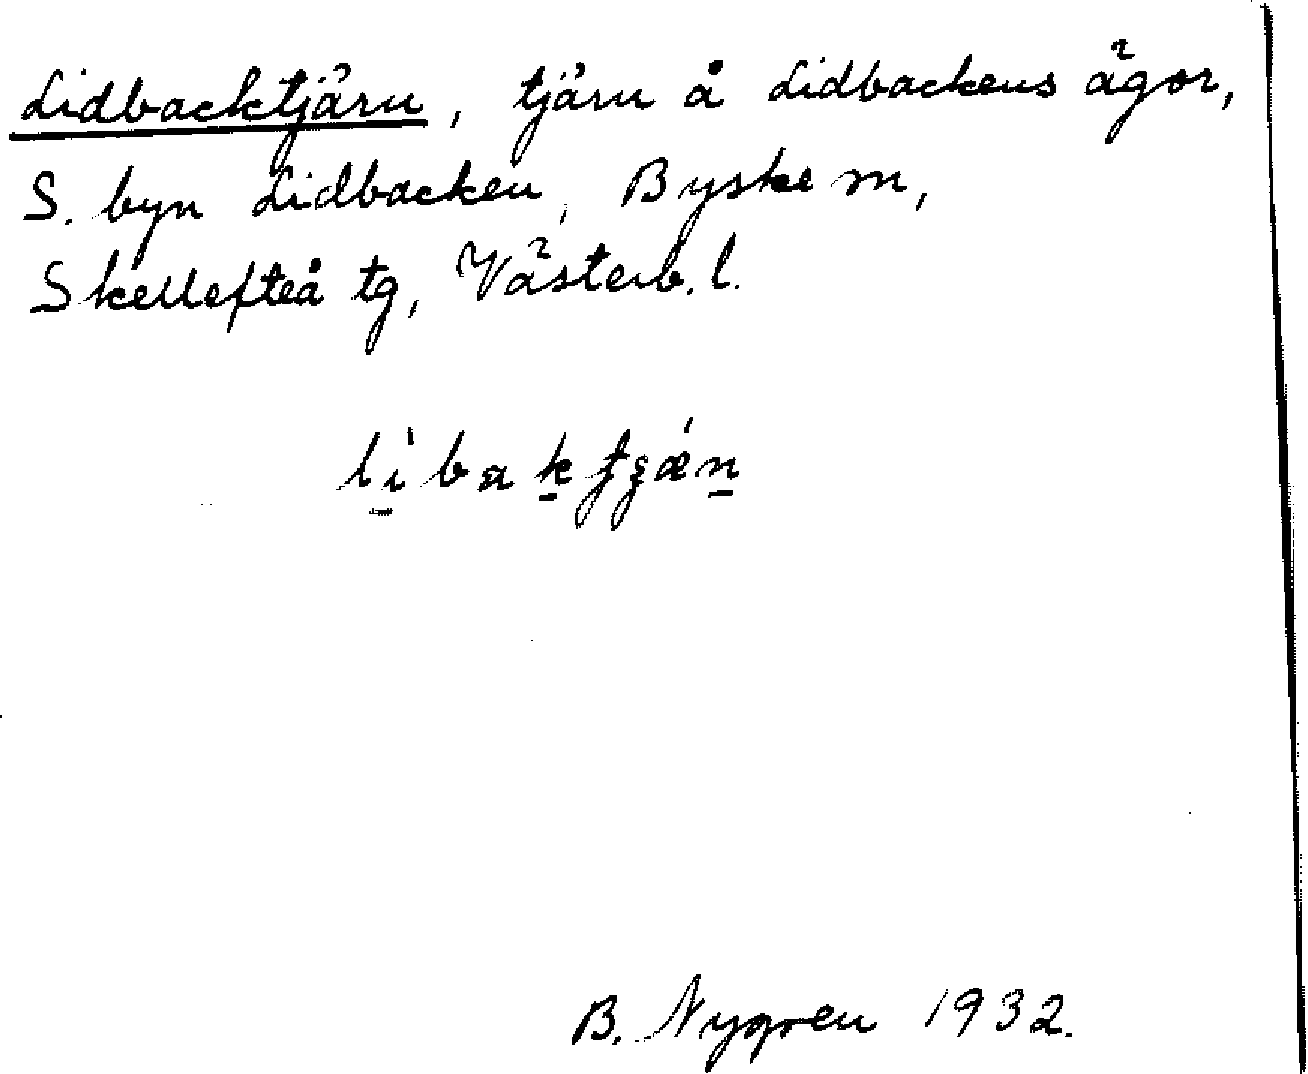 Lidbacktjärn, tjärn å Lidbackens ägor,
S. byn Lidbacken, Byske sn,
Skellefteå tg, Västerb. l.
B. Nygren 1932.